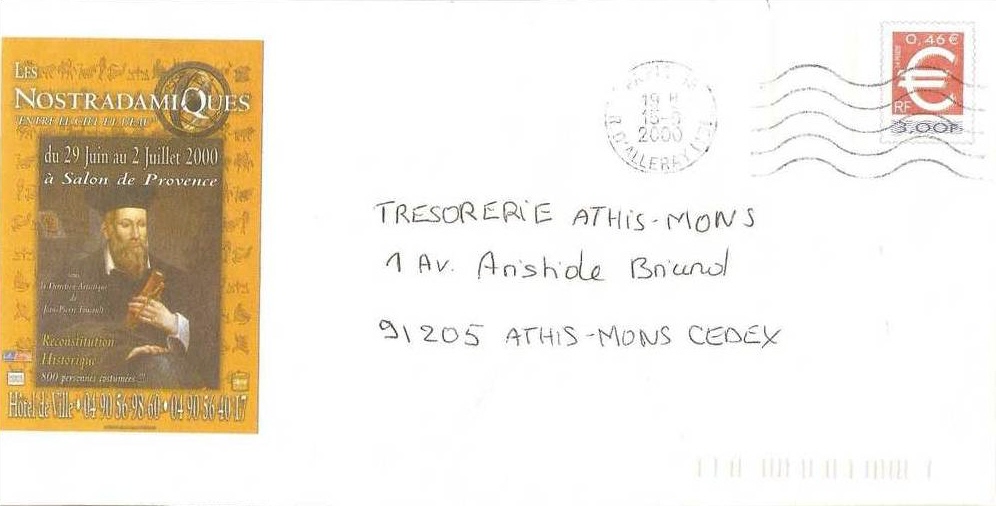 LES
NOSTRADAMIQUES
ENTRE LE CIEL ET L'EAU
du 29 Juin au 2 Juillet 2000
à Salon de Provence
sous
la Direction Artistique
de
Jean-Pierre Foucault
Reconstitution
Historique
800 personnes costumées !!!
Hôtel de Ville • 04 90 56 98 60 • 04 90 56 40 17
19 H
2000
R D'ALLERAY
0,46 €
RF
3,00F
TRESORERIE ATHIS-MONS
1 Av. Aristide Briand
91205 ATHIS-MONS CEDEX